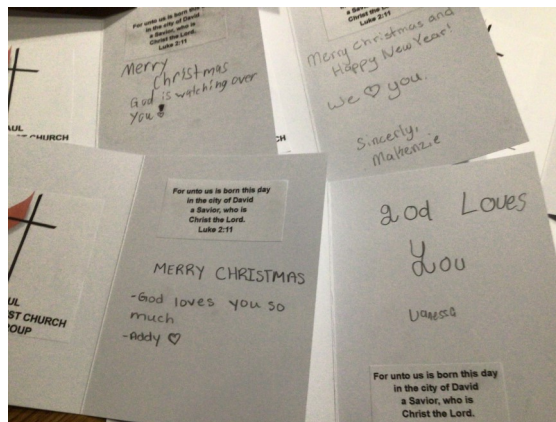 For unto us is born this day
in the city of David
a Savior, who is
Christ the Lord.
Luke 2:11
Merry
Christmas
God is watching over
you
AUL
ST CHURCH
CH
a Savior, who is
Christ the Lord.
Luke 2:11
Merry christmas and
Happy New Year!
we ♡ you.
Sincerly,
Makenzie
For unto us is born this day
in the city of David
a Savior, who is
Christ the Lord.
Luke 2:11
MERRY CHRISTMAS
-God loves you so
much
-Addy ♡
UL
ST CHURCH
OUP
god Loves
You
Vanessa
For unto us is born this day
in the city of David
a Savior, who is
Christ the Lord.